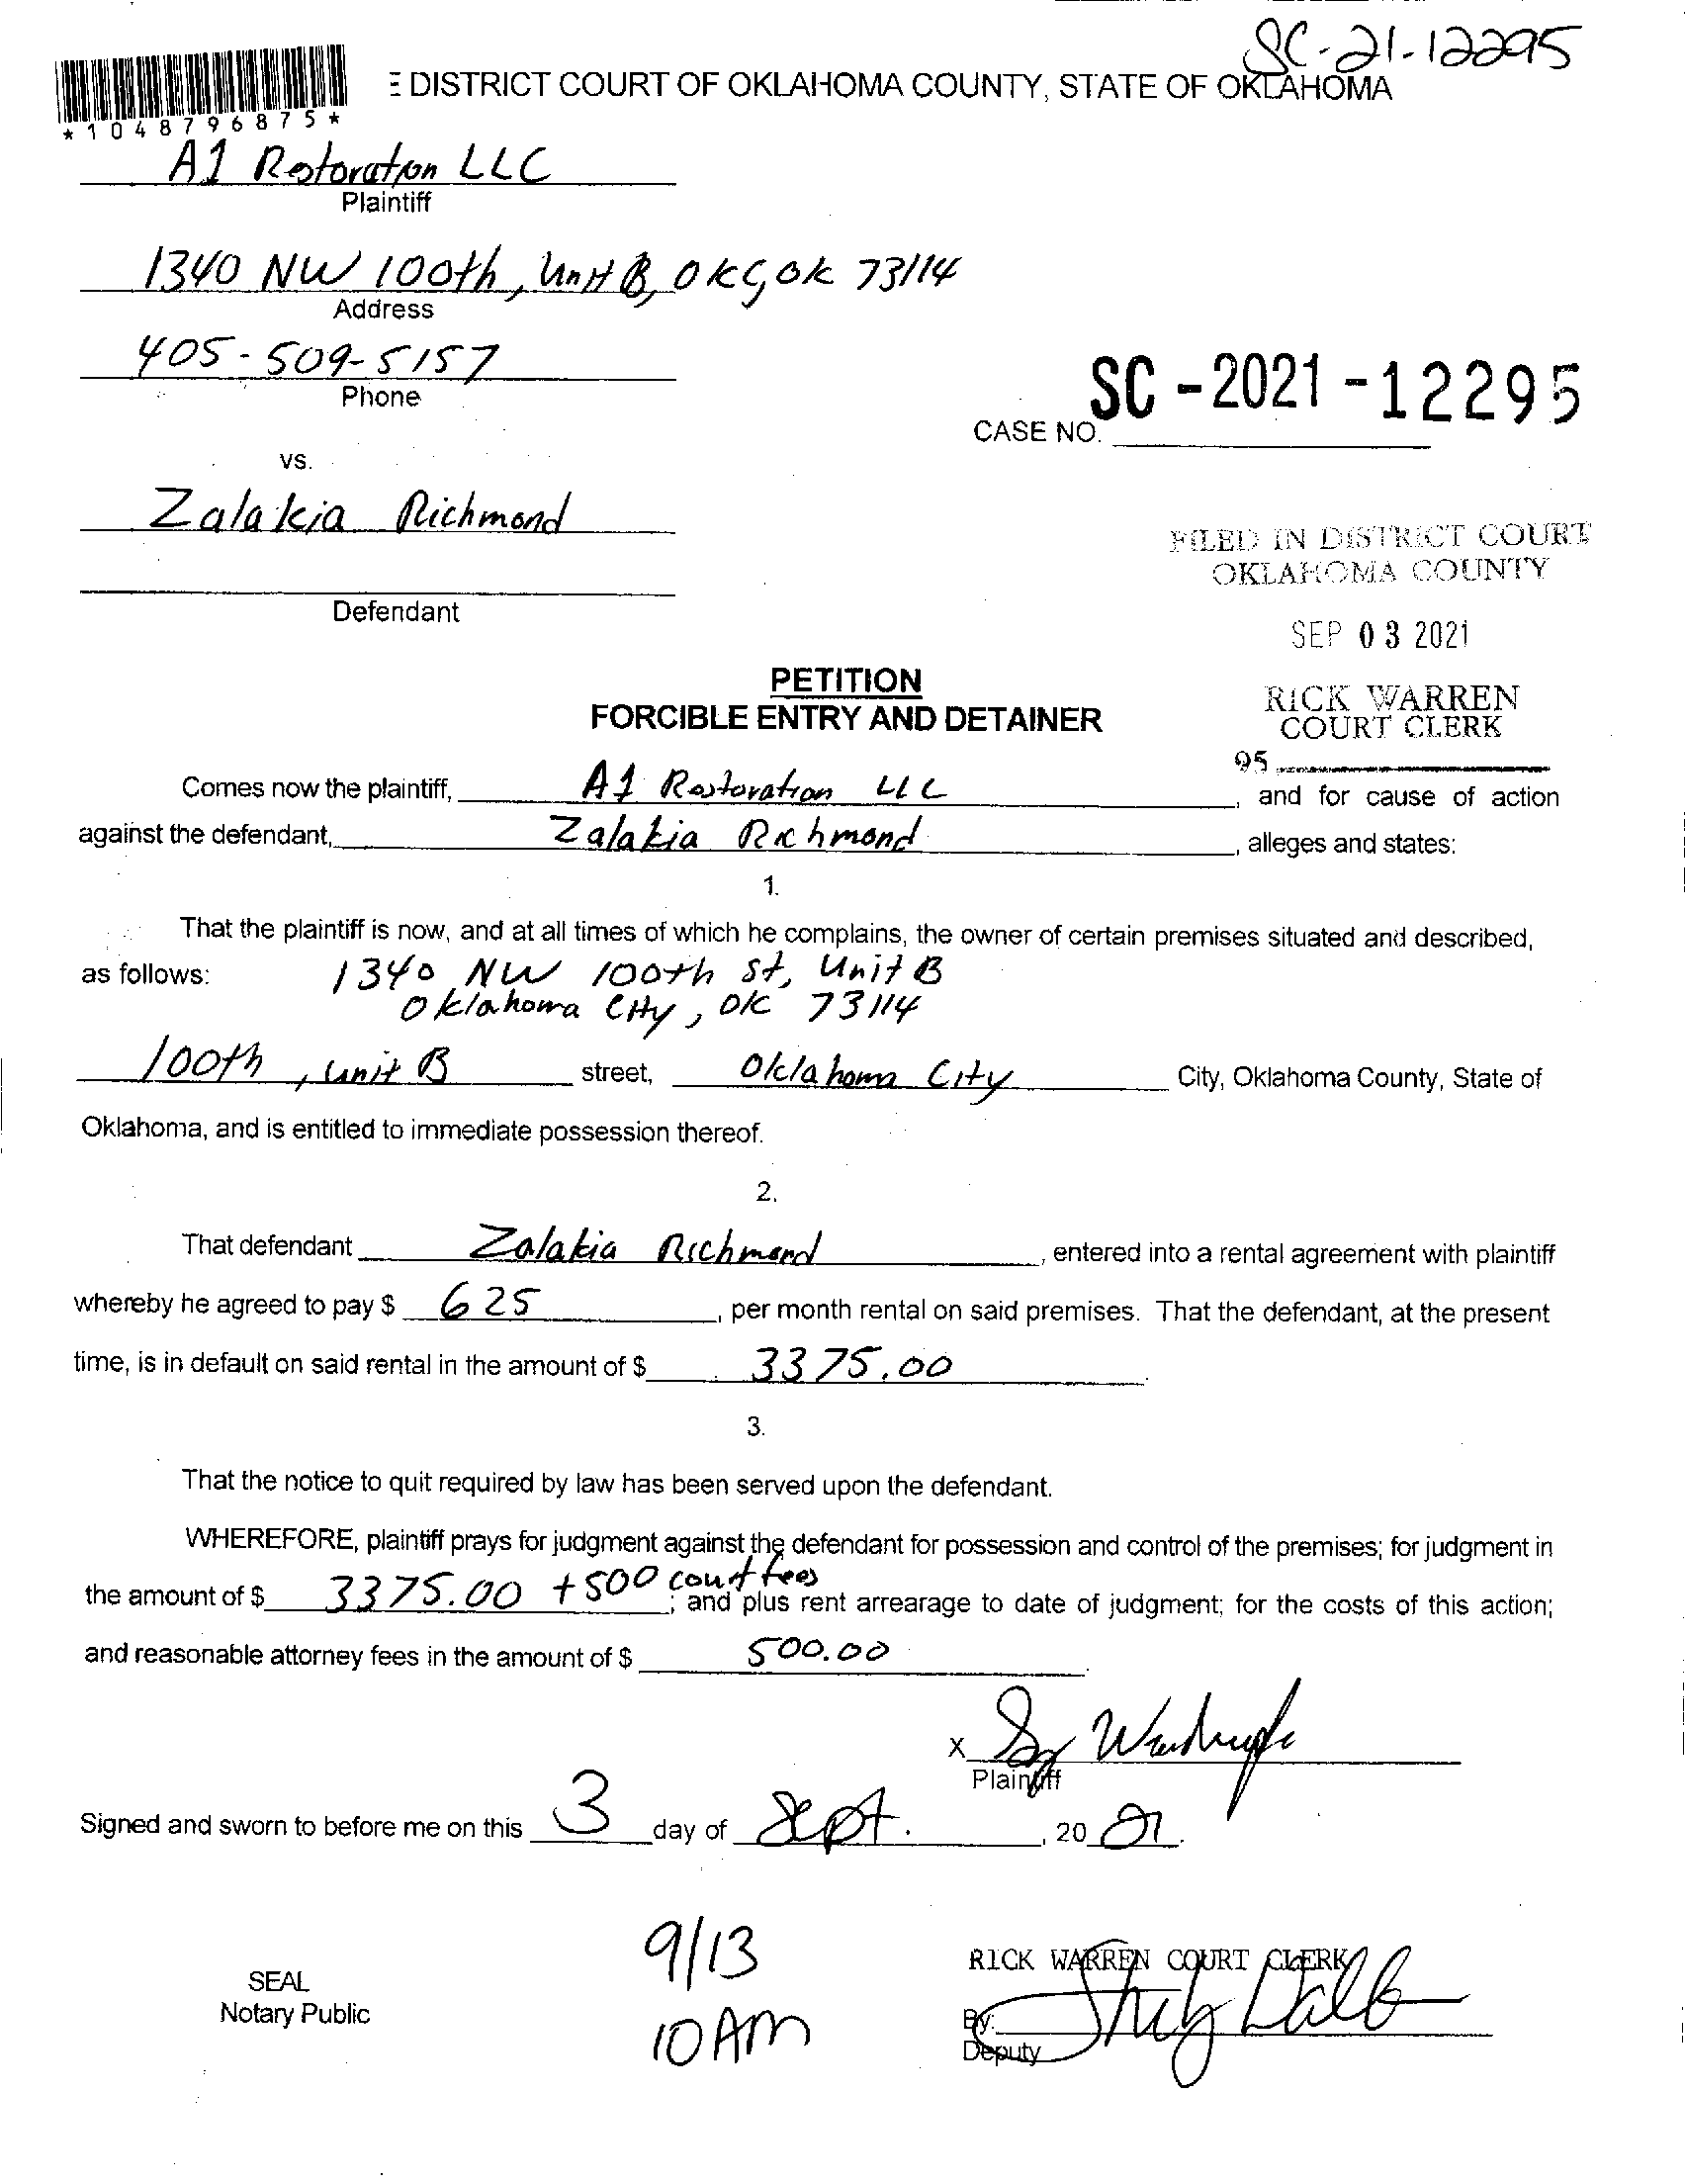 SC-21-12295
E DISTRICT COURT OF OKLAHOMA COUNTY, STATE OF OKLAHOMA
*1048796875*
A1 Restoration LLC
Plaintiff
1340 NW 100th, Unit B, OKC, OK 73114
Address
405-509-5157
Phone
SC-2021-12295
CASE NO.
vs.
Zalakia Richmond
Defendant
FILED IN DISTRICT COURT
OKLAHOMA COUNTY
SEP 03 2021
RICK WARREN
COURT CLERK
95
PETITION
FORCIBLE ENTRY AND DETAINER
Comes now the plaintiff, A1 Restoration LLC, and for cause of action
against the defendant, Zalakia Richmond, alleges and states:
1.
That the plaintiff is now, and at all times of which he complains, the owner of certain premises situated and described,
as follows: 1340 NW 100th St, Unit B
Oklahoma City, OK 73114
100th, Unit B street, Oklahoma City City, Oklahoma County, State of
Oklahoma, and is entitled to immediate possession thereof.
2.
That defendant Zalakia Richmond, entered into a rental agreement with plaintiff
whereby he agreed to pay $ 625, per month rental on said premises. That the defendant, at the present
time, is in default on said rental in the amount of $ 3375.00.
3.
That the notice to quit required by law has been served upon the defendant.
WHEREFORE, plaintiff prays for judgment against the defendant for possession and control of the premises; for judgment in
the amount of $ 3375.00 +500 court fees; and plus rent arrearage to date of judgment; for the costs of this action;
and reasonable attorney fees in the amount of $ 500.00.
X
Plaintiff
Signed and sworn to before me on this 3 day of Sept., 2021.
9/13
10 AM
SEAL
Notary Public
RICK WARREN COURT CLERK
By:
Deputy